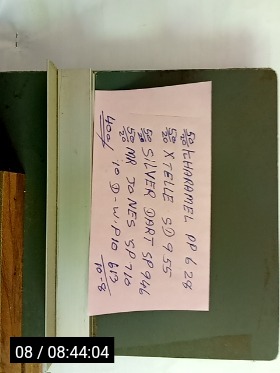 50/20 CHARAMEL PP 628
50/20 XTELLE SD 955
50/20 SILVER DART SP 946
50/20 MR JONES SP 710
400/ 10 D-W.P 10 613
10-8
08 / 08:44:04